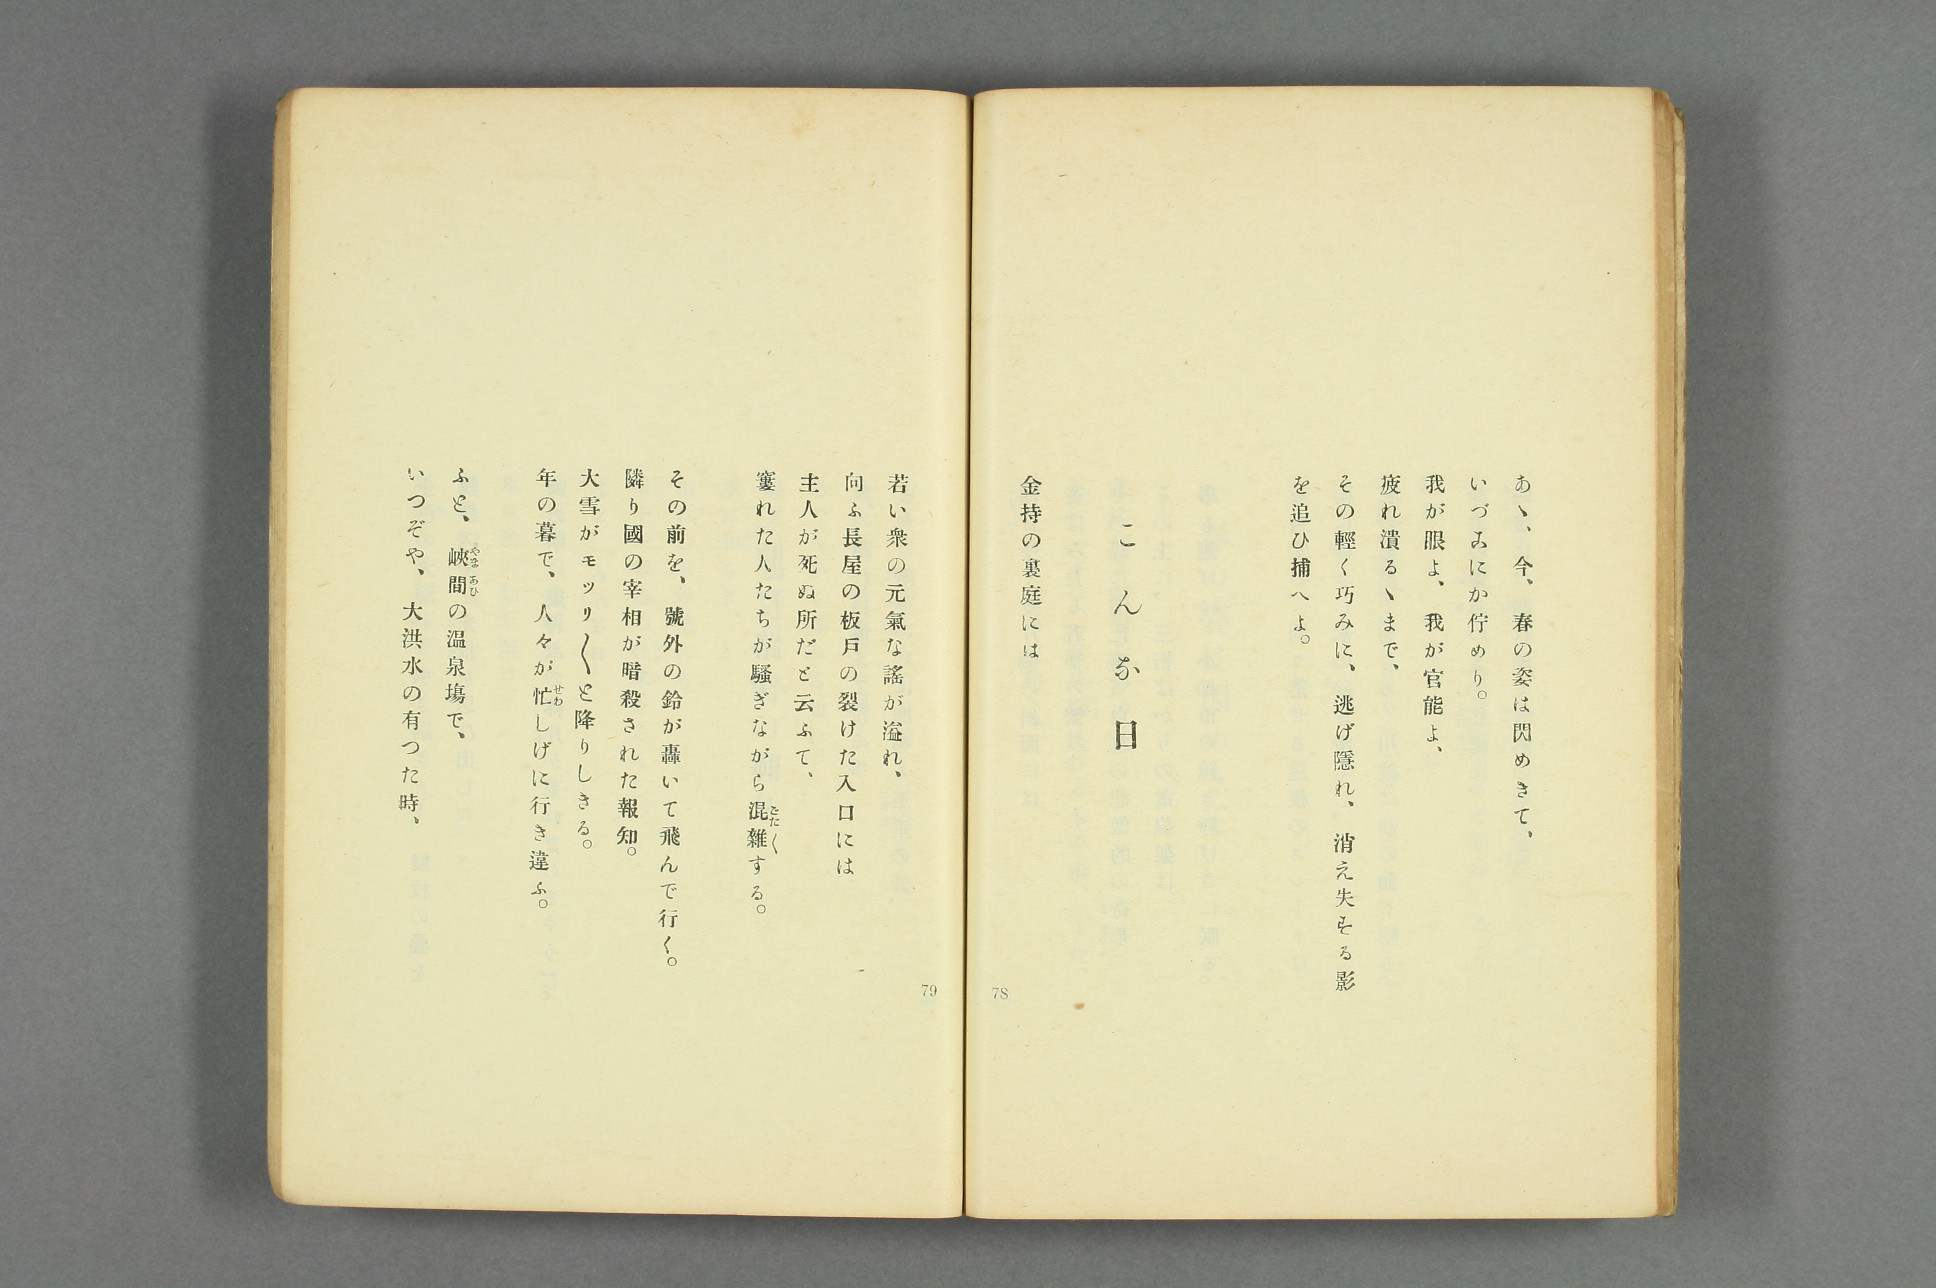 あゝ、今、春の姿は閃めきて、
いづこにか佇めり。
我が眼よ、我が官能よ、
疲れ潰るゝまで、
その輕く巧みに、逃げ隱れ、消え失する影
を追ひ捕へよ。
こんな日
金持の裏庭には
78
若い衆の元氣な謠が溢れ、
向ふ長屋の板戸の裂けた入口には
主人が死ぬ所だと云ふて、
窶れた人たちが騷ぎながら混雜する。
ごた〱
その前を、號外の鈴が轟いて飛んで行く。
隣り國の宰相が暗殺された報知。
大雪がモッリ〱と降りしきる。
年の暮で、人々が忙しげに行き違ふ。
せわ
ふと、峽間の温泉塲で、
やま あひ
いつぞや、大洪水の有つた時、
79